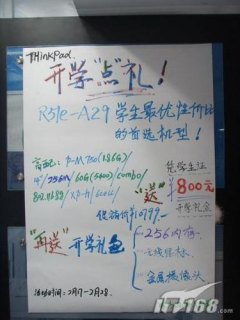 THinkPad
开学"点"礼!
R51e-A29 学生最优性价比
的首选机型!
P-M 750 (1.86G)
14"/256M/60G(5400)/combo/
凭学生证
"送"
800元
开学礼金
促销价:
"再送"开学礼包
256内存
无线鼠标
金属摄像头
活动时间:2月17-2月28.
IT168.com